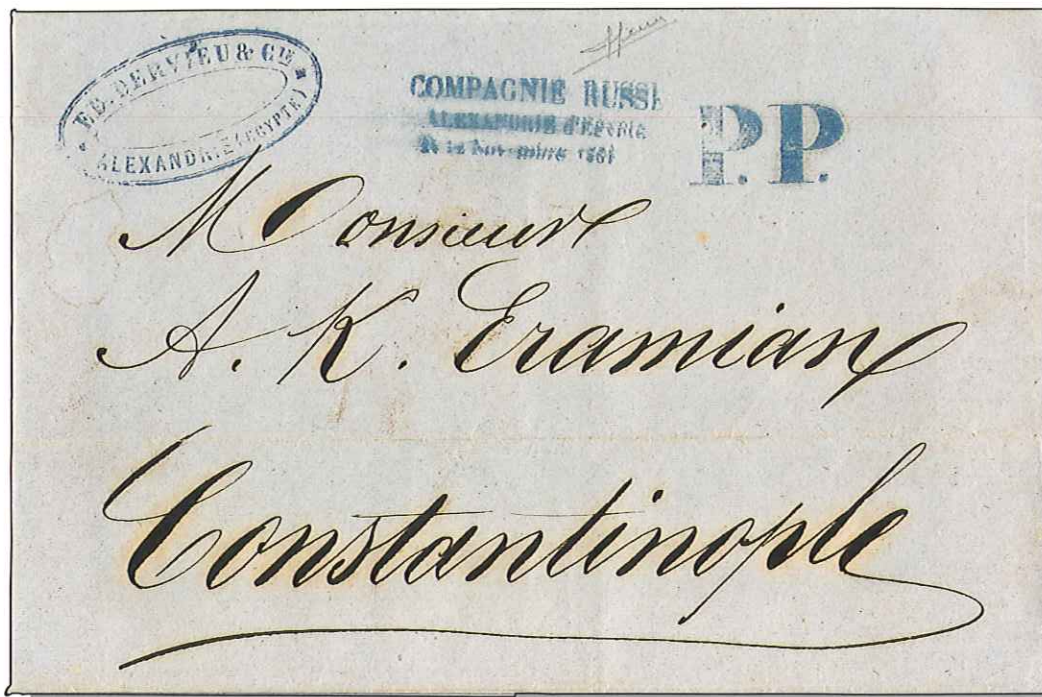 ED. DERVIEU & CIE
ALEXANDRIE (EGYPTE)
COMPAGNIE RUSSE
ALEXANDRIE d'Egypte
Novembre
P.P.
Monsieur
A. K. Eramian
Constantinople